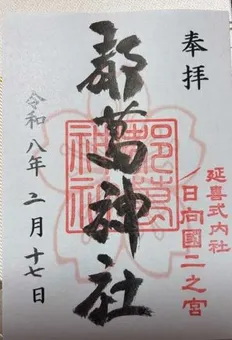 奉拝
延喜式内社
日向國二之宮
都萬神社
都萬神社
令和八年二月十七日